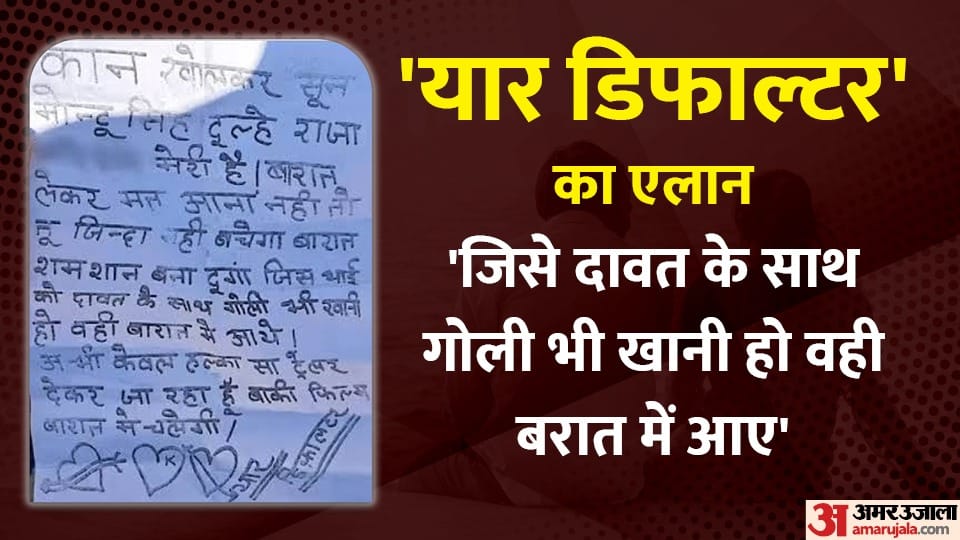 कान खोलकर सुन
मोन्टू सिंह दूल्हे राजा
मेरी है। बारात
लेकर मत आना नही तो
तू जिन्दा नही बचेगा बारात
शमशान बना दूगां जिस भाई
को दावत के साथ गोली भी खानी
हो वही बारात मे आये।
अभी केवल हल्का सा ट्रेलर
देकर जा रहा हूँ बाकी फिल्म
बारात मे चलेगी।
K
यार डिफाल्टर
'यार डिफाल्टर'
का एलान
'जिसे दावत के साथ
गोली भी खानी हो वही
बरात में आए'
अ अमर उजाला
amarujala.com